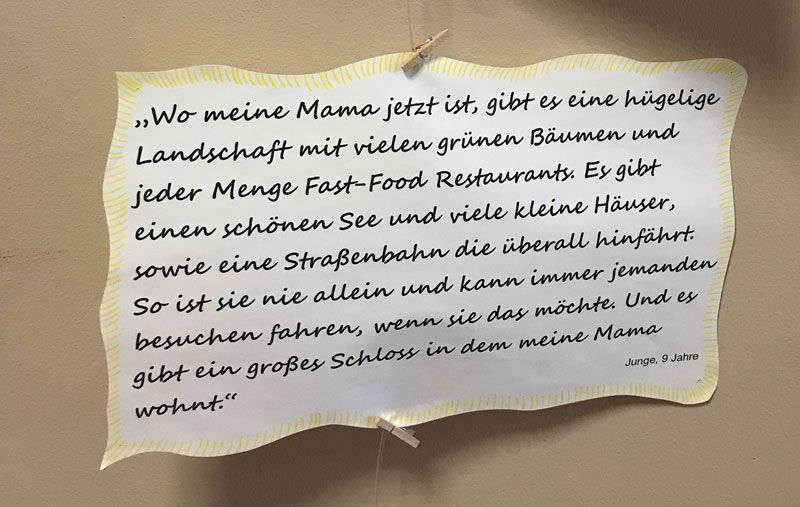 „Wo meine Mama jetzt ist, gibt es eine hügelige
Landschaft mit vielen grünen Bäumen und
jeder Menge Fast-Food Restaurants. Es gibt
einen schönen See und viele kleine Häuser,
sowie eine Straßenbahn die überall hinfährt.
So ist sie nie allein und kann immer jemanden
besuchen fahren, wenn sie das möchte. Und es
gibt ein großes Schloss in dem meine Mama
wohnt.“
Junge, 9 Jahre